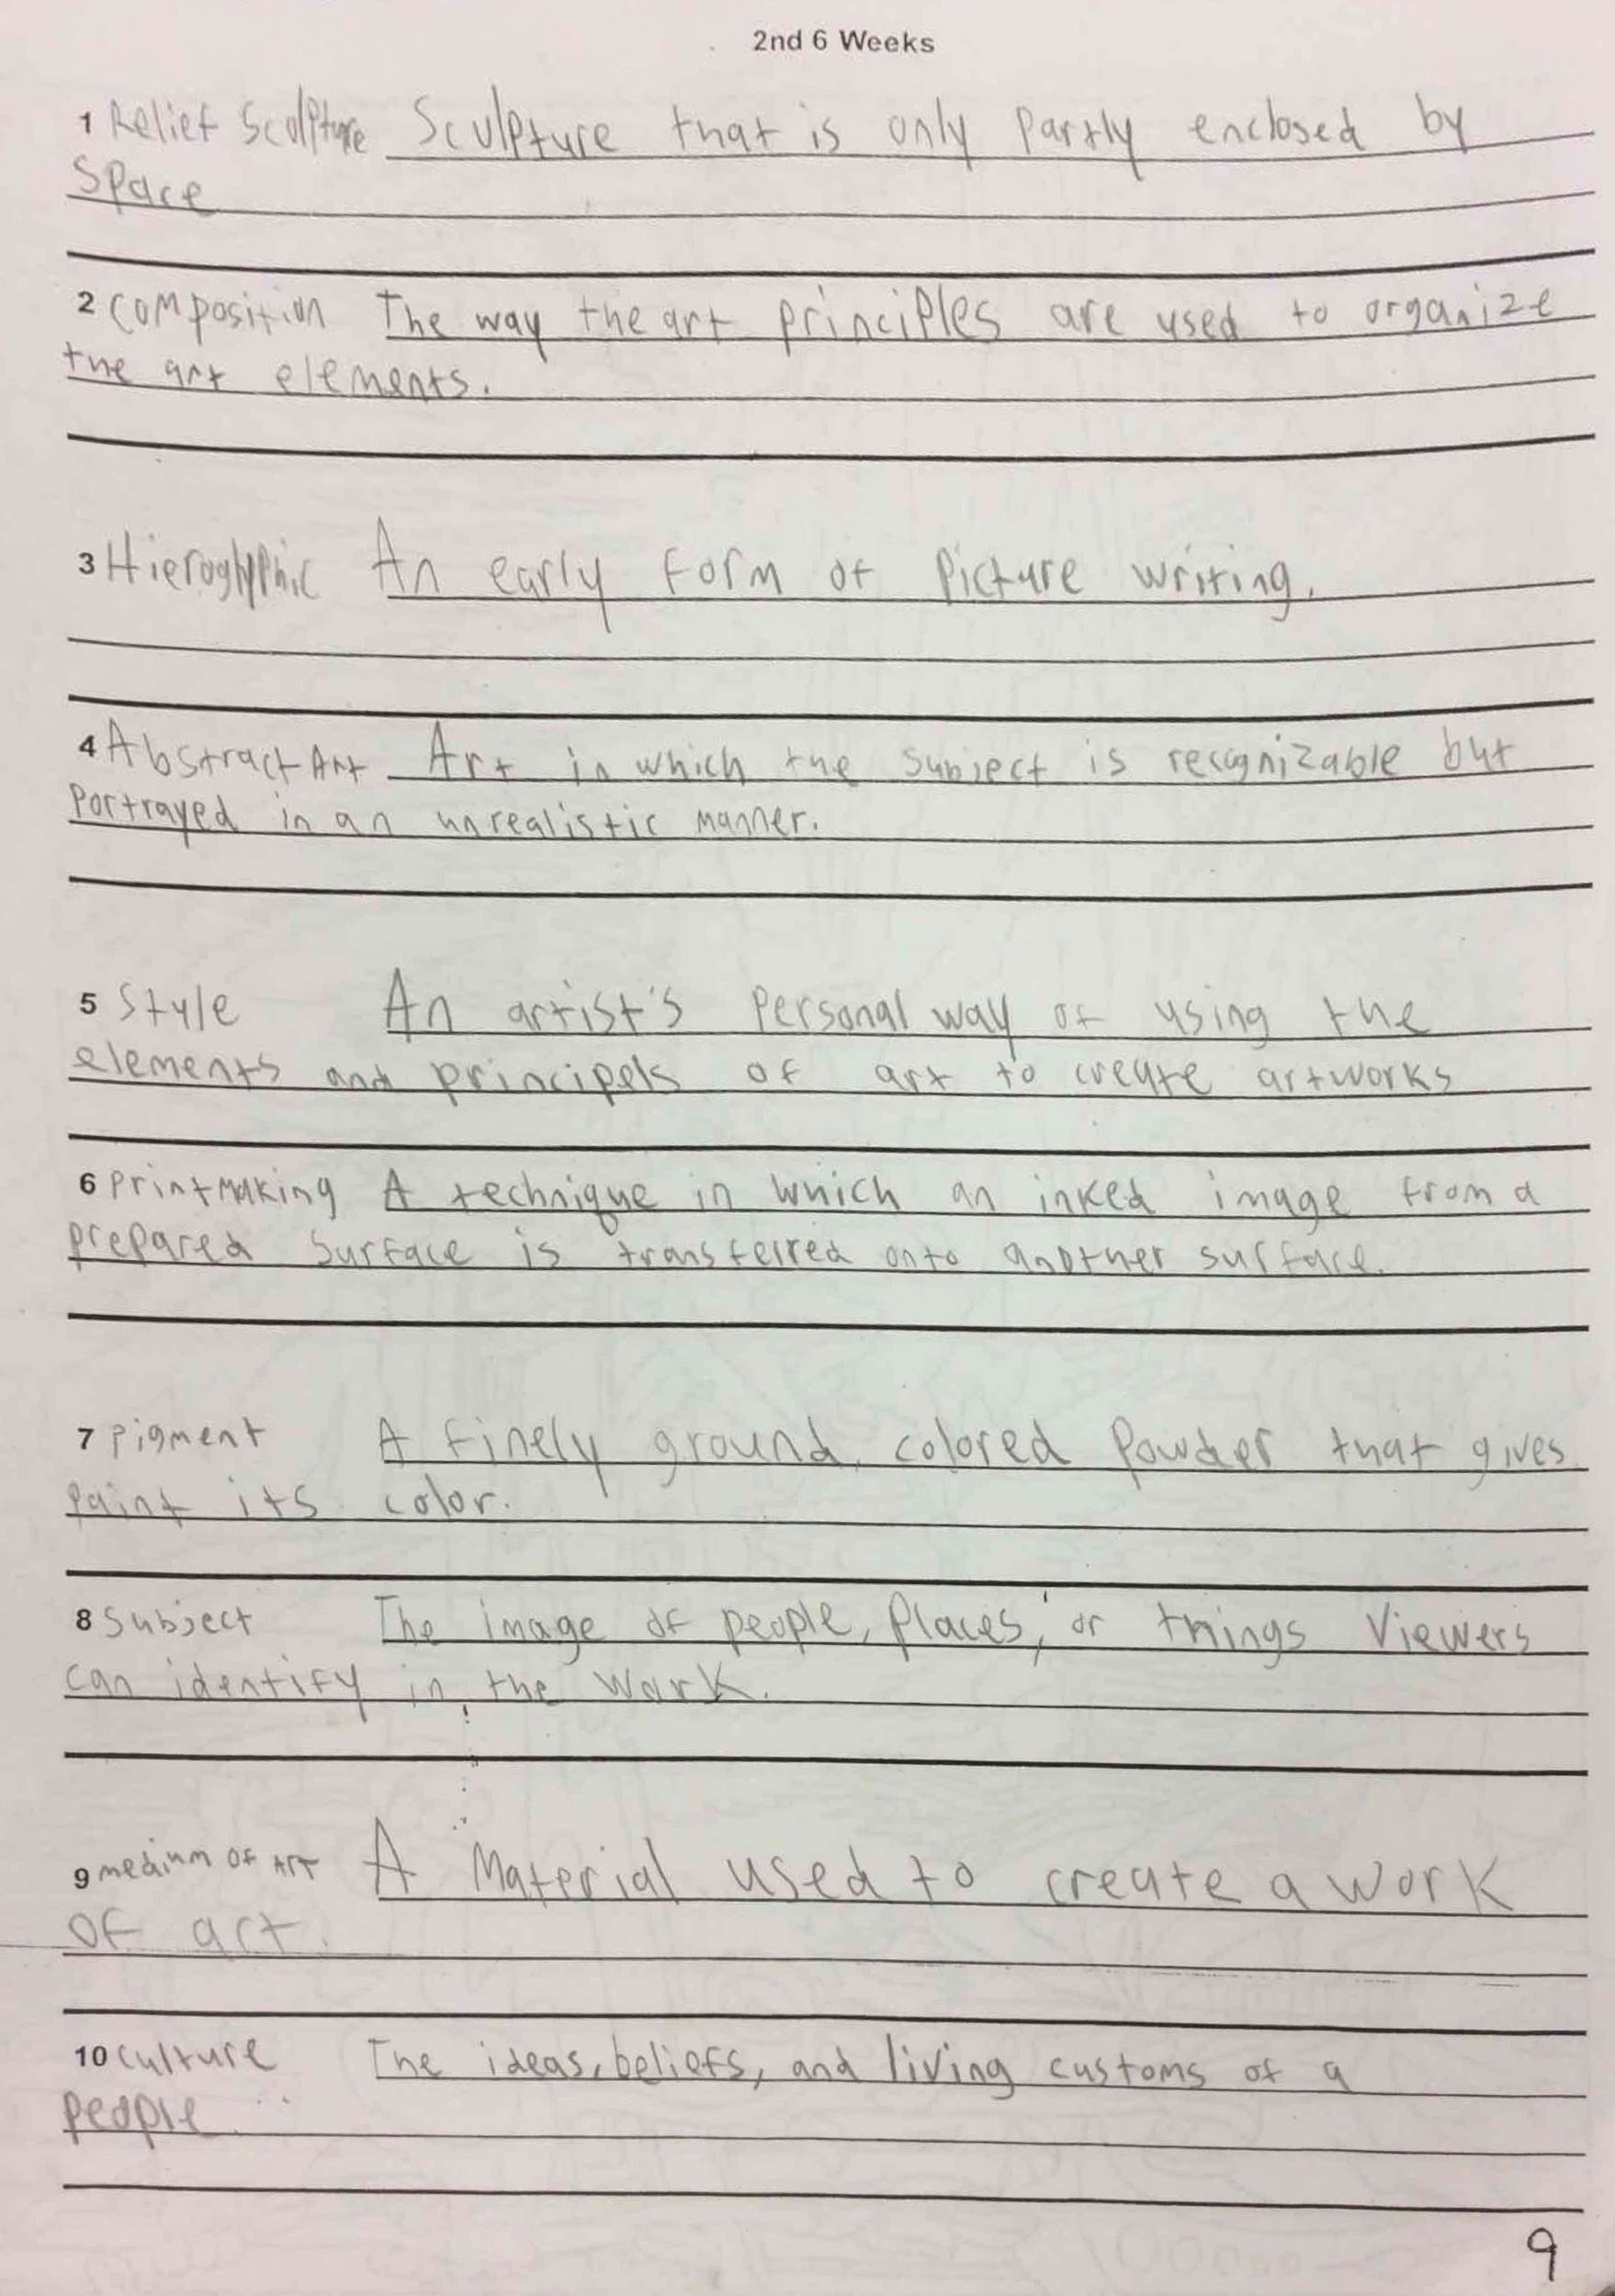 2nd 6 Weeks
1 Relief Sculpture Sculpture that is only partly enclosed by
space
2 composition The way the art principles are used to organize
the art elements.
3 Hieroglyphic An early form of picture writing.
4 Abstract Art Art in which the subject is recognizable but
portrayed in an unrealistic manner.
5 Style An artist's personal way of using the
elements and principels of art to create artworks
6 printmaking A technique in which an inked image from a
prepared surface is transferred onto another surface.
7 pigment A finely ground, colored powder that gives
paint its color.
8 subject The image of people, places, or things viewers
can identify in the work.
9 medium of Art A material used to create a work
of art.
10 culture The ideas, beliefs, and living customs of a
people
9